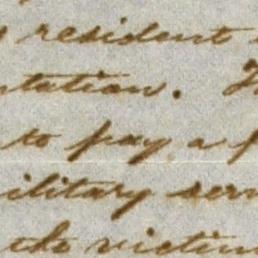 resident
ntation.
to pay a
ilitary ser
the victim